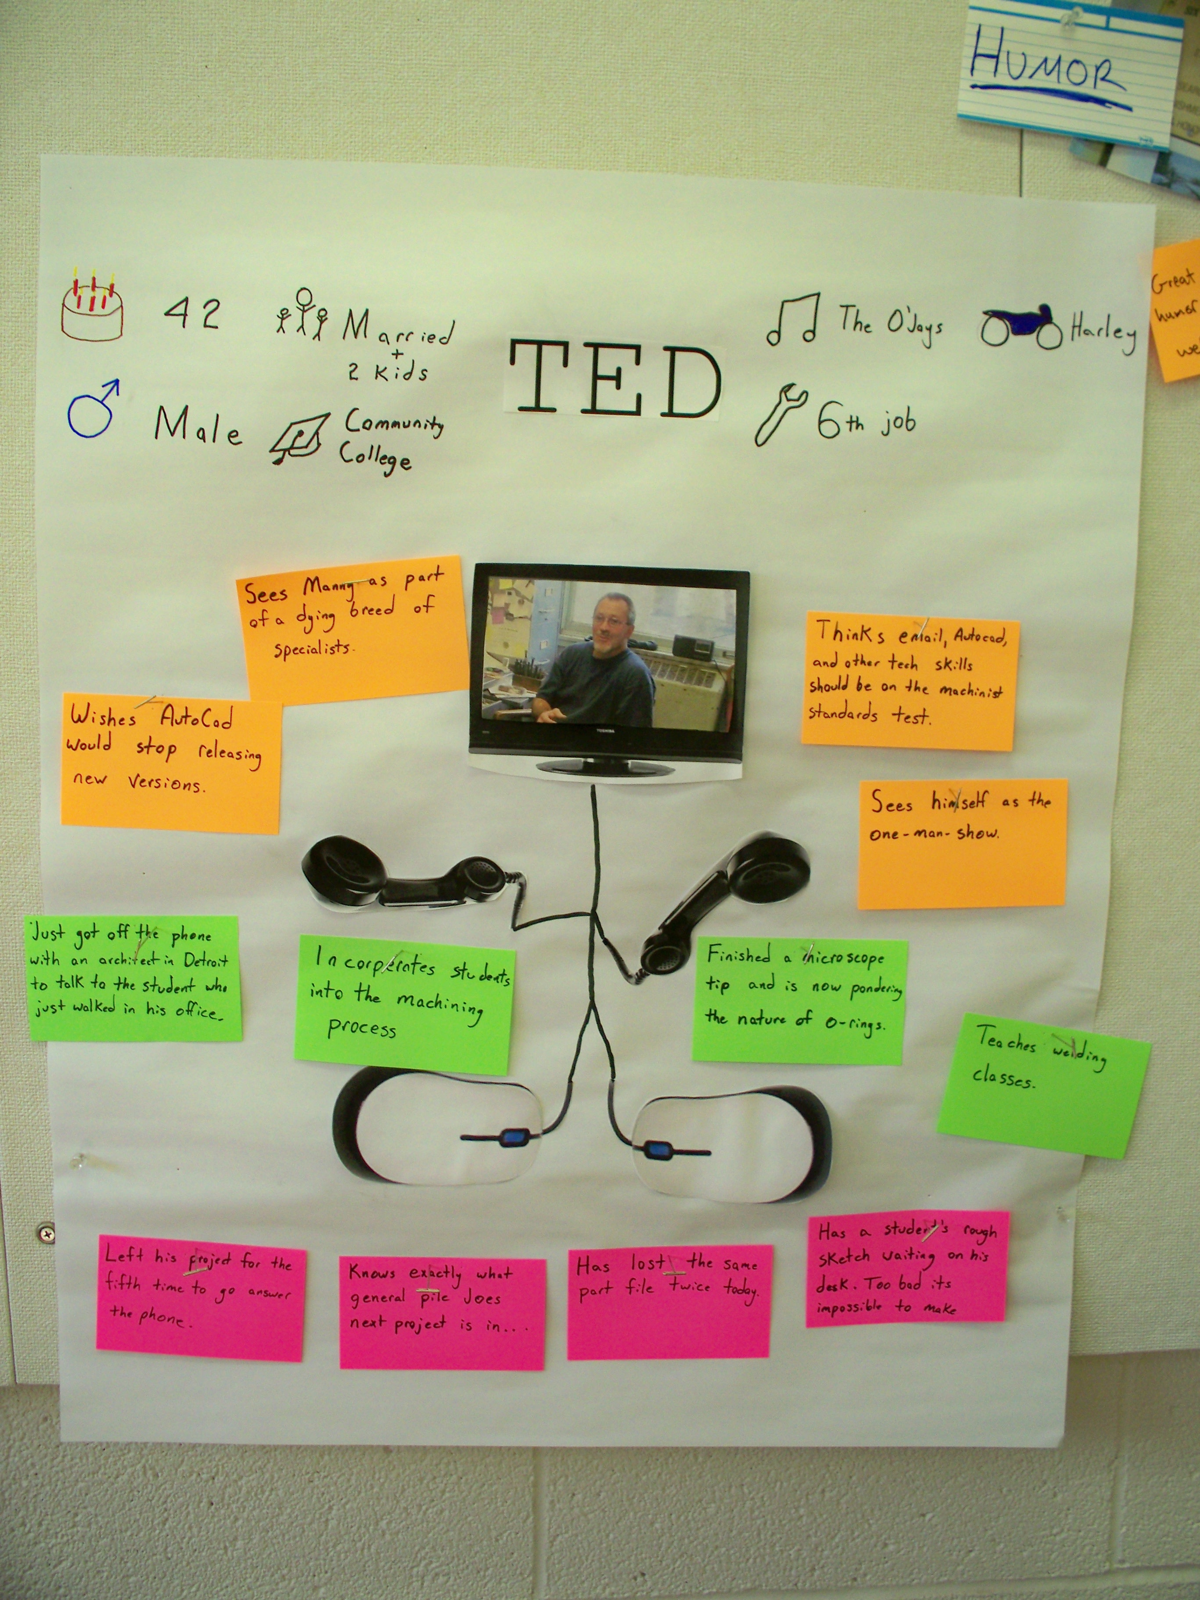 HUMOR
Great
humor
we
42
Married
+
2 Kids
Male
Community
College
TED
The O'Jays
Harley
6th job
Sees Manny as part
of a dying breed of
specialists.
Wishes AutoCad
would stop releasing
new versions.
TOSHIBA
Thinks email, Autocad,
and other tech skills
should be on the machinist
standards test.
Sees himself as the
one-man-show.
Just got off the phone
with an architect in Detroit
to talk to the student who
just walked in his office.
Incorperates students
into the machining
process
Finished a microscope
tip and is now pondering
the nature of o-rings.
Teaches welding
classes.
Left his project for the
fifth time to go answer
the phone.
Knows exactly what
general pile Joes
next project is in...
Has lost the same
part file twice today.
Has a student's rough
sketch waiting on his
desk. Too bad its
impossible to make